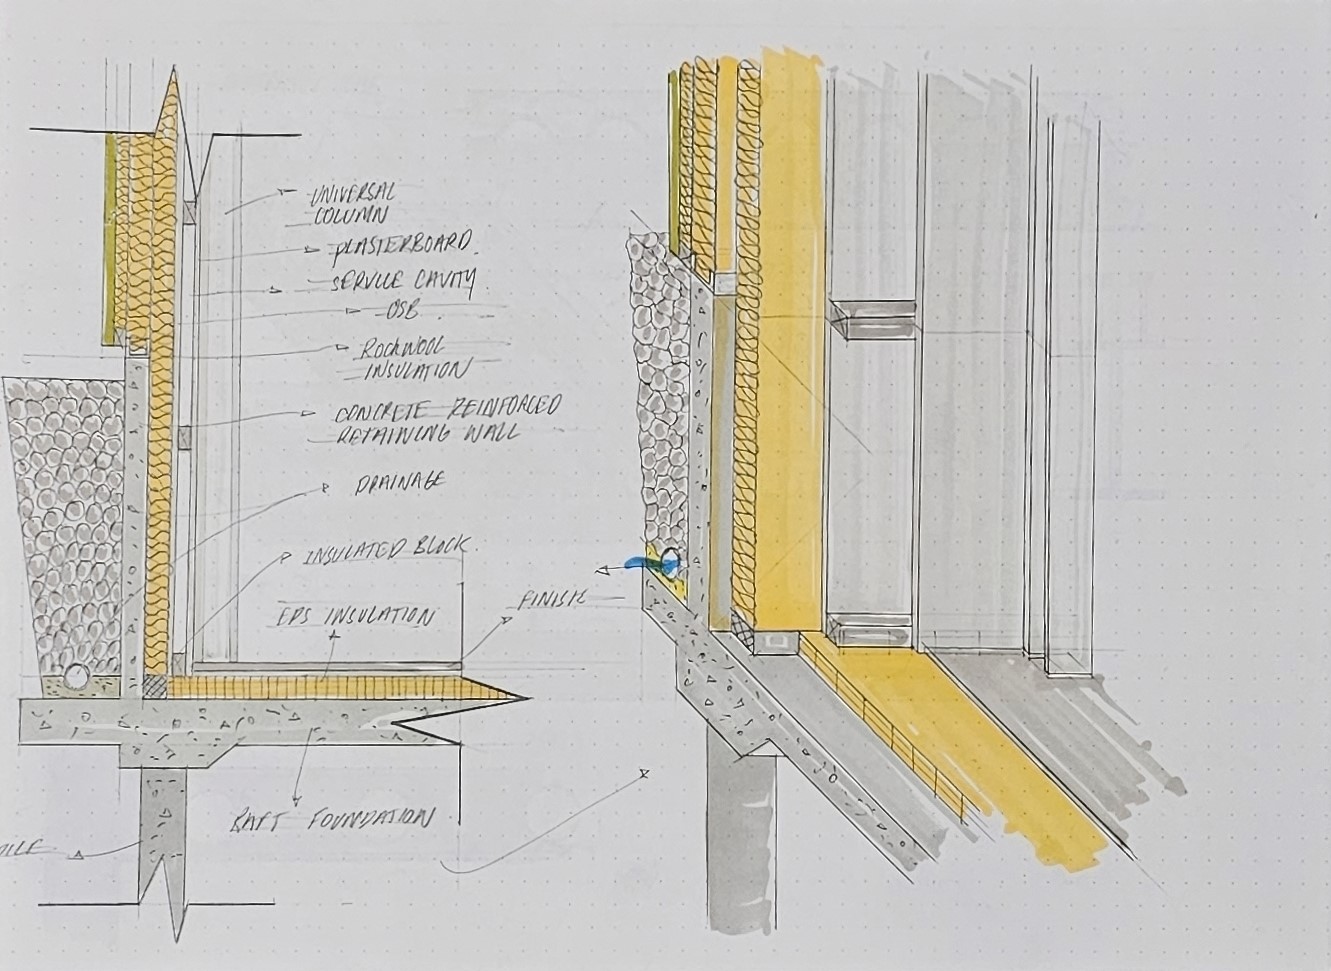 UNIVERSAL
COLUMN
PLASTERBOARD.
SERVICE CAVITY
OSB
ROCKWOOL
INSULATION
CONCRETE REINFORCED
RETAINING WALL
DRAINAGE
INSULATED BLOCK.
EPS INSULATION
FINISH
RAFT FOUNDATION